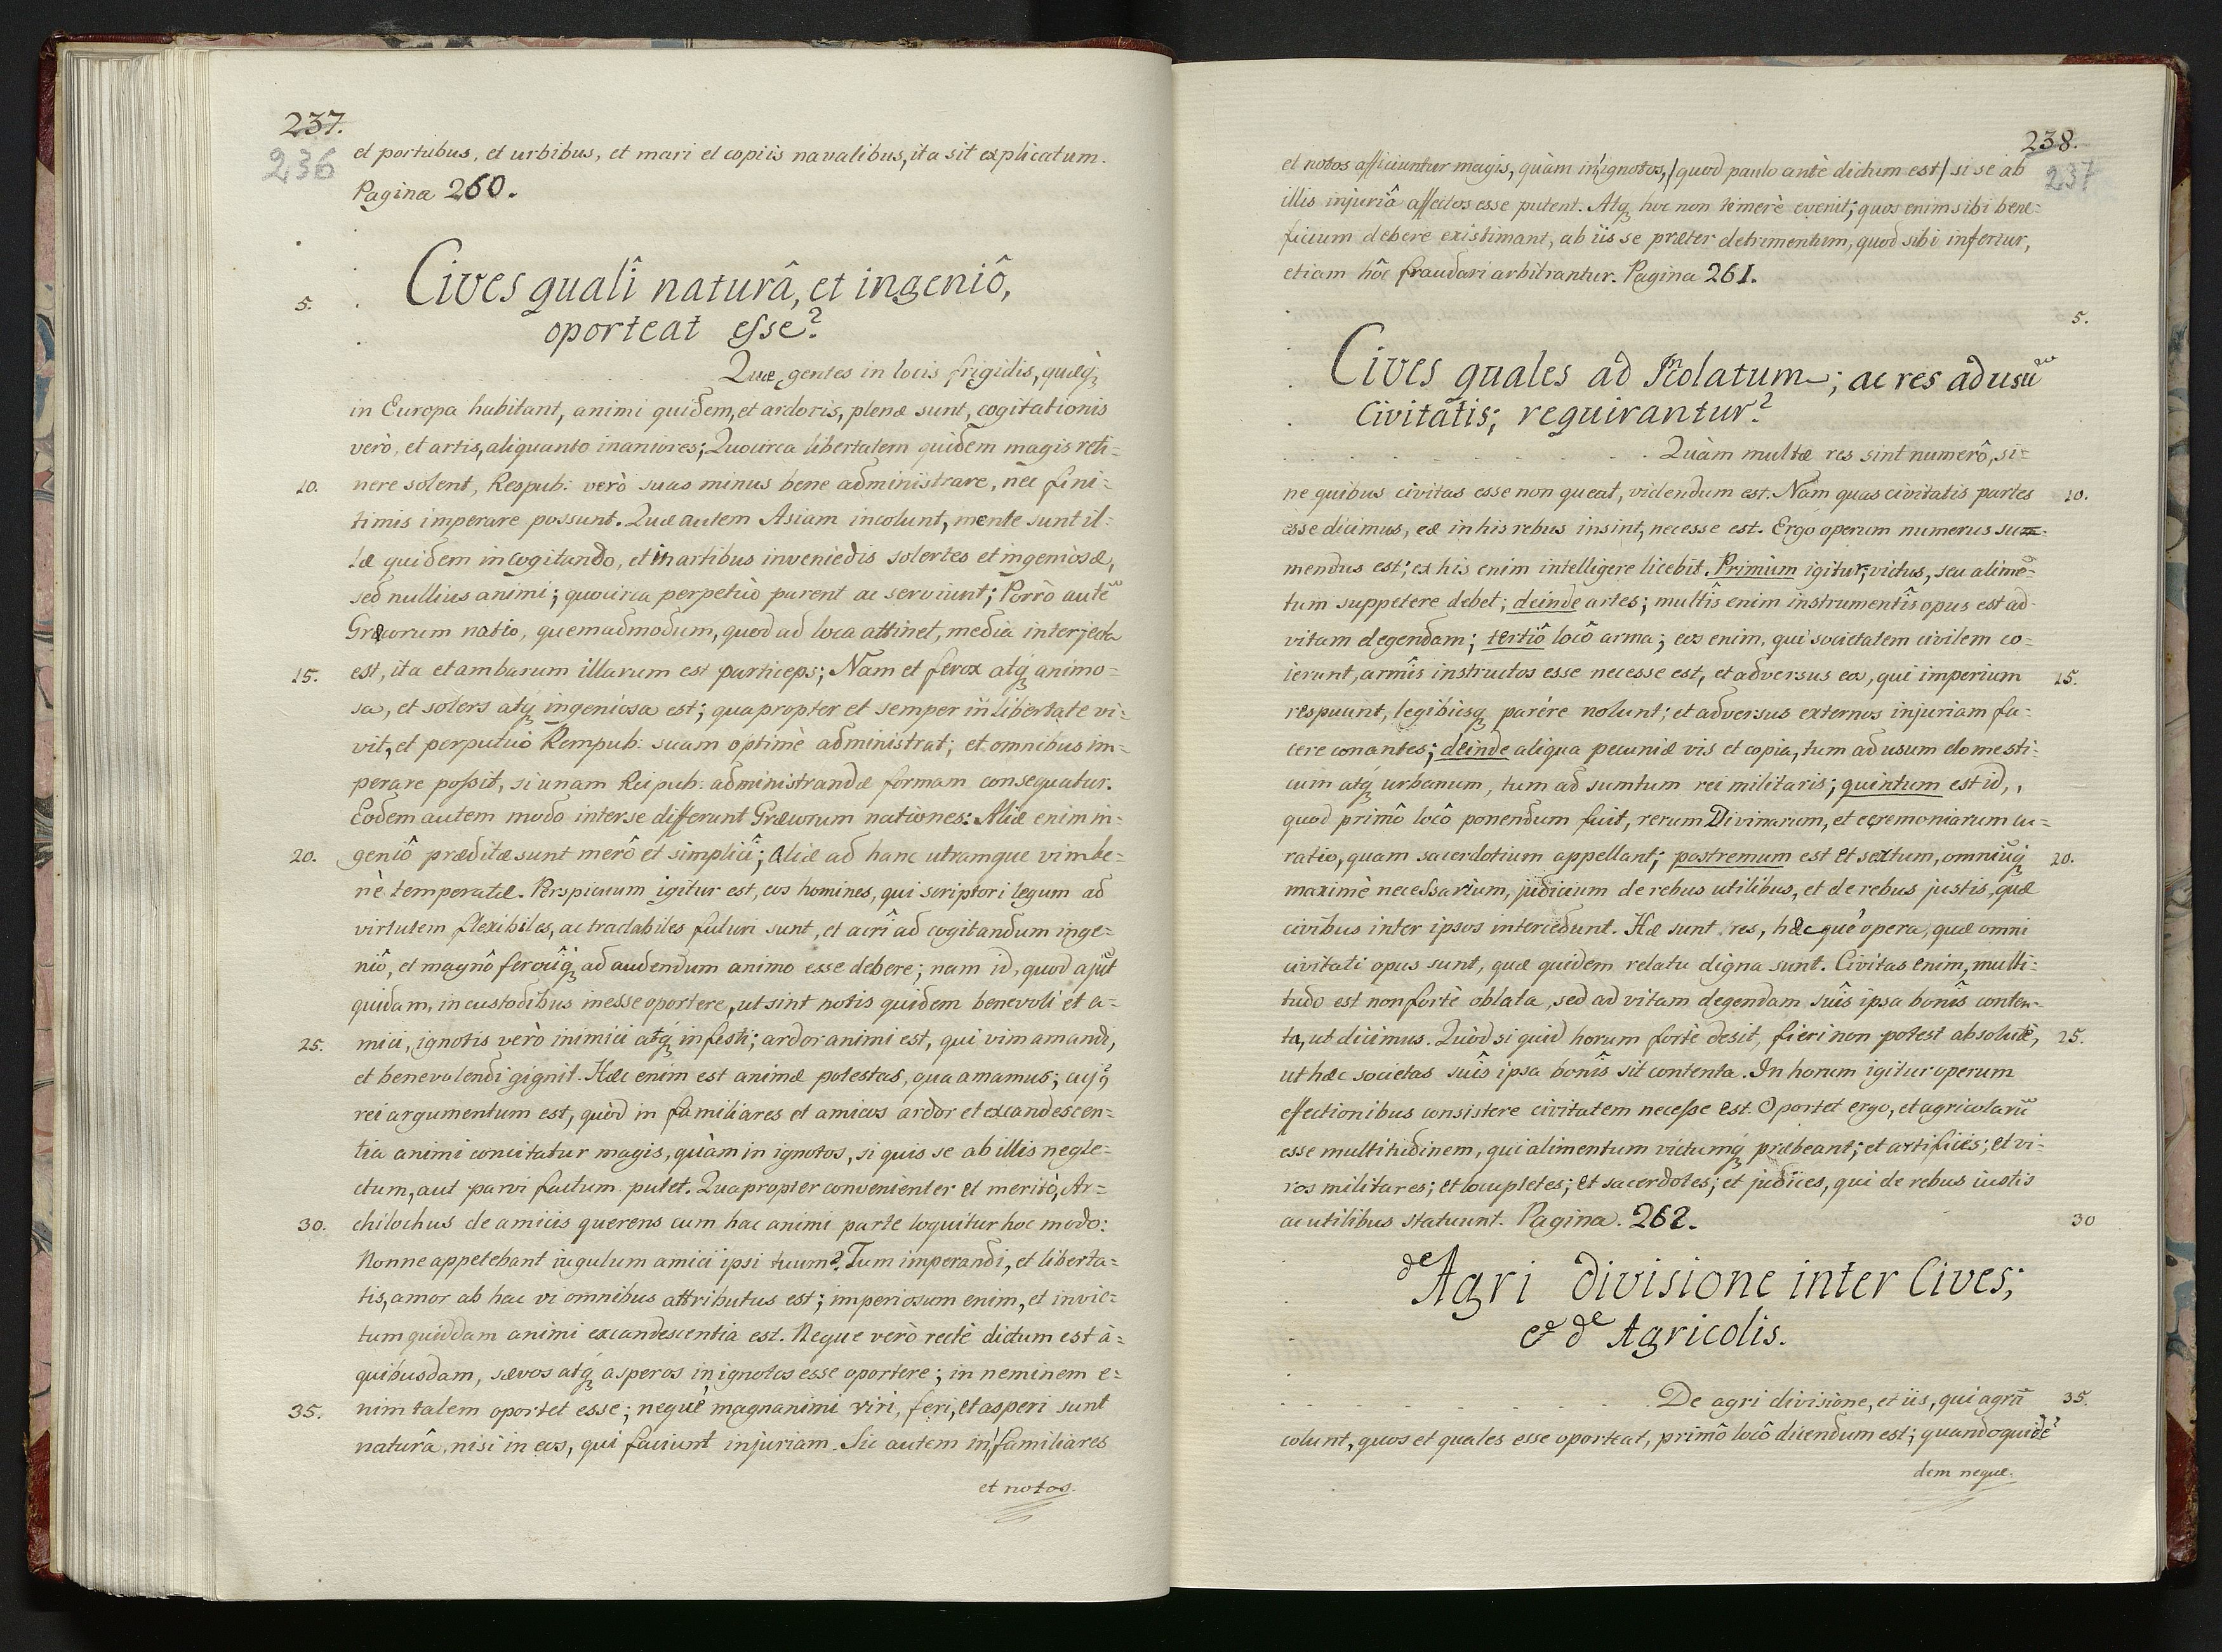 237.
236
et portubus, et urbibus, et mari et copiis navalibus, ita sit explicatum.
Pagina 260.
Cives qualî naturâ, et ingeniô,
5.
oporteat esse?
Quæ gentes in locis frigidis, quæq̢
in Europa habitant, animi quidem, et ardoris, plenæ sunt, cogitationis
verò, et artis, aliquanto inaniores; Quocirca libertatem quidem magis reti=
10. nere solent, Respub: verò suas minus bene administrare, nec fini=
timis imperare possunt. Quæ autem Asiam incolunt, mente sunt il=
læ quidem in cogitando, et in artibus inveniēdis solertes et ingeniosæ,
sed nullius animi; quocirca perpetuò parent ac serviunt; Porrò autē
Græcorum natio, quemadmodum, quod ad loca attinet, media interjecta
15. est, ita et ambarum illarum est particeps; Nam et ferox atq̢ animo=
sa, et solers atq̢ ingeniosa est; quapropter et semper in libertate vi=
vit, et perpetuò Rempub: suam optimè administrat; et omnibus im=
perare possit, si unam Reipub: administrandæ formam consequatur.
Eodem autem modo inter se differunt Græcorum nationes: Aliæ enim in=
20. geniô præditæ sunt merô et simplicî; aliæ ad hanc utramque vim be=
nè temperatæ. Perspicuum igitur est, eos homines, qui scriptori legum ad
virtutem flexibiles, ac tractabiles futuri sunt, et acrî ad cogitandum inge=
niô, et magnô ferocîq̢ ad audendum animo esse debere; nam id, quod ajūt
quidam, in custodibus inesse oportere, ut sint notis quidem benevoli et a=
25. mici, ignotis verò inimici atq̢ infesti; ardor animi est, qui vim amandi,
et benevolendi gignit. Hæc enim est animæ potestas, qua amamus; cujꝰ
rei argumentum est, quòd in familiares et amicos ardor et excandescen=
tia animi concitatur magis, quàm in ignotos, si quis se ab illis negle=
ctum, aut parvi factum putet. Quapropter convenienter et meritò, Ar=
30. chilochus de amicis querens cum hac animi parte loquitur hoc modo:
Nonne appetebant iugulum amici ipsi tuum? Tum imperandi, et liberta=
tis, amor ab hac vi omnibus attributus est; imperiosum enim, et invic=
tum quiddam animi excandescentia est. Neque verò rectè dictum est à=
quibusdam, sævos atq̢ asperos in ignotos esse oportere; in neminem e=
35. nim talem oportet esse; neque magnanimi viri, feri, et asperi sunt
naturâ, nisi in eos, qui faciunt injuriam. Sic autem in familiares
et notos.
238.
237
et notos afficiuntur magis, quàm in ignotos, /quod paulo antè dictum est/ si se ab
illis injuriâ affectos esse putent. Atq̢ hoc non temerè evenit; quos enim sibi bene=
ficium debere existimant, ab iis se præter detrimentum, quod sibi infertur,
etiam hôc fraudari arbitrantur. Pagina 261.
5.
Cives quales ad Incolatum; ac res ad usū
Civitatis; requirantur?
Quàm multæ res sint numerô, si=
ne quibus civitas esse non queat, videndum est. Nam quas civitatis partes 10.
esse dicimus, eæ in his rebus insint, necesse est. Ergo operum numerus su=
mendus est; ex his enim intelligere licebit. Primùm igitur, victus, seu alimē=
tum suppetere debet; deinde artes; multîs enim instrumentîs opus est ad
vitam degendam; tertiô locô arma; eos enim, qui societatem civilem co=
ierunt, armîs instructos esse necesse est, et adversus eos, qui imperium 15.
respuunt, legibusq̢ parère nolunt; et adversus externos injuriam fa=
cere conantes; deinde aliqua pecuniæ vis et copia, tum ad usum domesti=
cum atq̢ urbanum, tum ad sumtum rei militaris; quintum est id,
quod primô locô ponendum fuit, rerum Divinarum, et ceremoniarum cu=
ratio, quam sacerdotium appellant; postremum est et sextum, omniūq̢ 20.
maximè necessarium, judicium de rebus utilibus, et de rebus justis, quæ
civibus inter ipsos intercedunt. Hæ sunt res, hæc què opera, quæ omni
civitati opus sunt, quæ quidem relatu digna sunt. Civitas enim, multi=
tudo est non fortè oblata, sed ad vitam degendam suîs ipsa bonîs conten=
ta, ut dicimus. Quòd si quid horum fortè desit, fieri non potest absolutè, 25.
ut hæc societas suîs ipsa bonîs sit contenta. In horum igitur operum
effectionibus consistere civitatem necesse est. Oportet ergo, et agricolarū
esse multitudinem, qui alimentum victumq̢ præbeant; et artifices; et vi=
ros militares; et locupletes; et sacerdotes; et judices, qui de rebus iustis
ac utilibus statuunt. Pagina. 262. 30
de Agri divisione inter Cives;
& de Agricolis.
De agri divisione, et iis, qui agrū 35.
colunt, quos et quales esse oporteat, primô locô dicendum est; quandoquidē
dem neque.